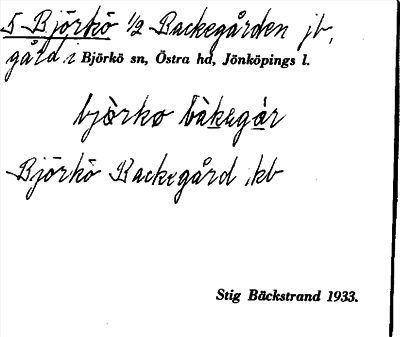 5 Björkö 1/2 Backegården jb,
gård i Björkö sn, Östra hd, Jönköpings l.
bjòrkø bàkegár
Björkö Backegård ,kb
Stig Bäckstrand 1933.